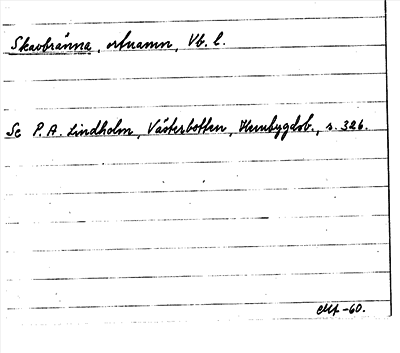 Skavbränna, ortnamn, Vb. l.
Se P. A. Lindholm, Västerbotten, Hembygdsb., s. 326.
-60.